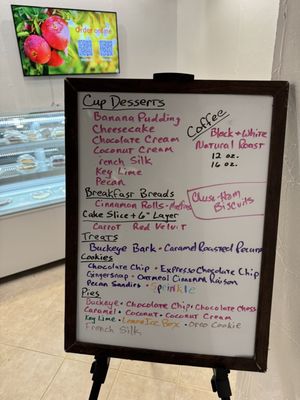 Order online
Cup Desserts
Banana Pudding
Cheesecake
Chocolate Cream
Coconut Cream
French Silk
Key Lime
Pecan
Coffee
Black & White
Natural Roast
12 oz.
16 oz.
Breakfast Breads
Cinnamon Rolls -
Chese-Ham
Biscuits
Cake Slice + 6" Layer
Carrot Red Velvit
Treats
Buckeye Bark • Caramel Roasted Pecans
Cookies
Chocolate Chip • Espresso Chocolate Chip
Gingersnap • Oatmeal Cinnamon Raison
Pecan Sandies • Sprinkle
Pies
Buckeye • Chocolate Chip • Chocolate Chess
Caramel • Coconut • Coconut Cream
Key Lime • Lemon Ice Box • Oreo Cookie
French Silk